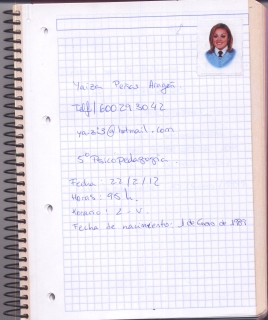 Yaiza Perez Aragón
Telf/ 600293042
@hotmail.com
5º Psicopedagogía.
Fecha: 27/2/12
Horas: 95 h.
Horario: L - V
Fecha de nacimiento: 1 de Enero de 1989